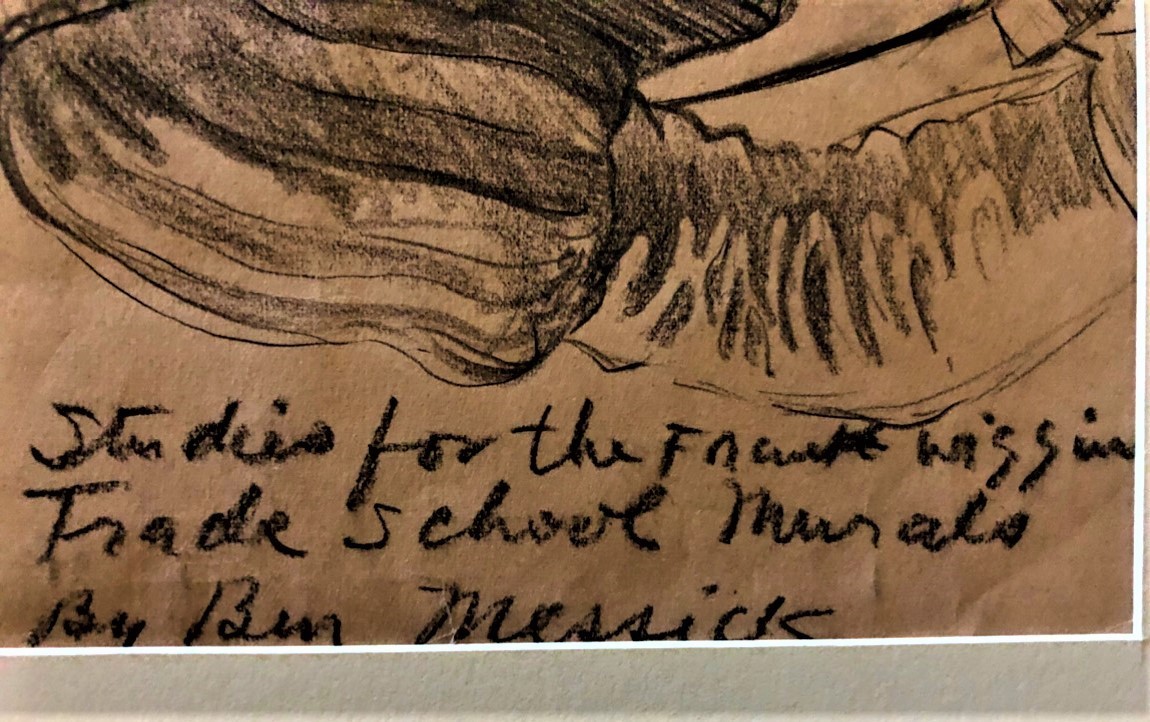 Studies for the Frank Wiggin
Trade School Murals
By Ben Messick